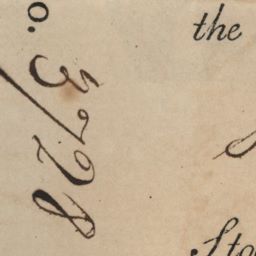 o. 3728
the
Sto